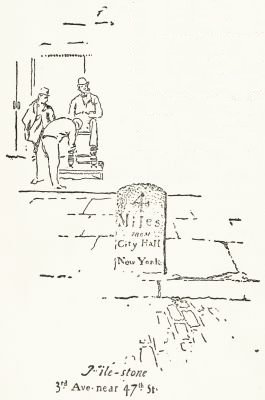 4
Miles
FROM
City Hall
New York
Mile-stone
3rd Ave. near 47th St.